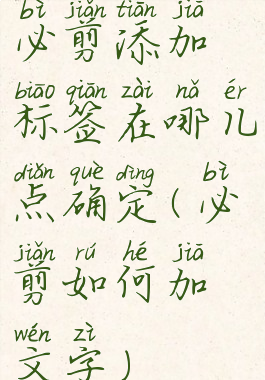 bì jiǎn tiān jiā
必剪添加
biāo qiān zài nǎ ér
标签在哪儿
diǎn què dìng bì
点确定(必
jiǎn rú hé jiā
剪如何加
wén zì
文字)